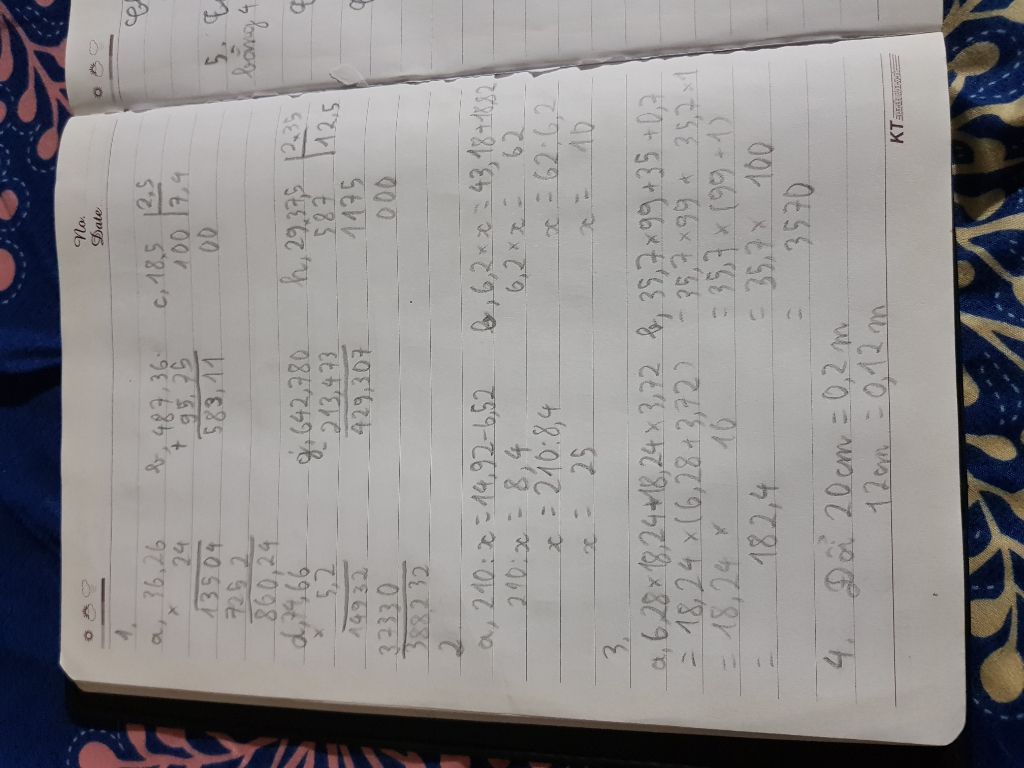 No.
Date
1,
a, 36.26 b, 487,36 c, 18,5 2,5
× 24 + 95,75 100 7,4
13504 583,11 00
725 2
860,24
d, 7466 g, 642,780 h, 29,375 2,35
× 52 - 213,473 587 12,5
14932 429,307 1175
37330 000
388232
2
a, 210: x = 14,92-6,52 b, 6,2 × x = 43,18+18,82
210: x = 8,4 6,2 × x = 62
x = 210:8,4 x = 62:6,2
x = 25 x = 10
3,
a, 6,28 × 18,24+18,24 × 3,72 b, 35,7 × 99+35 + 0,7
= 18,24 × (6,28 + 3,72) = 35,7 × 99 + 35,7 × 1
= 18,24 × 10 = 35,7 × (99 + 1)
= 182,4 = 35,7 × 100
= 3570
4. Đổi 20cm = 0,2 m
12cm = 0,12 m
KT
5.
bằng 4